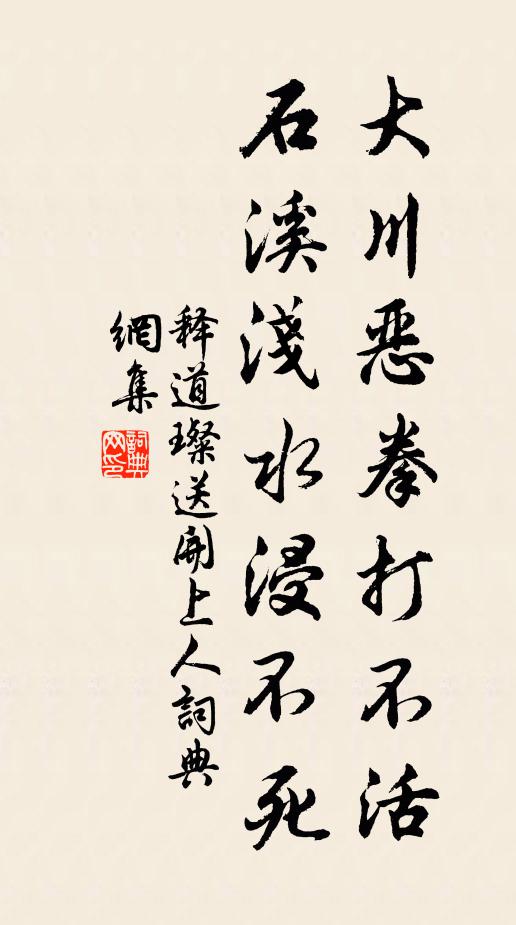 大川恶拳打不活
石溪淺水浸不死
释道璨送開上人詞典
網集
詞典網印